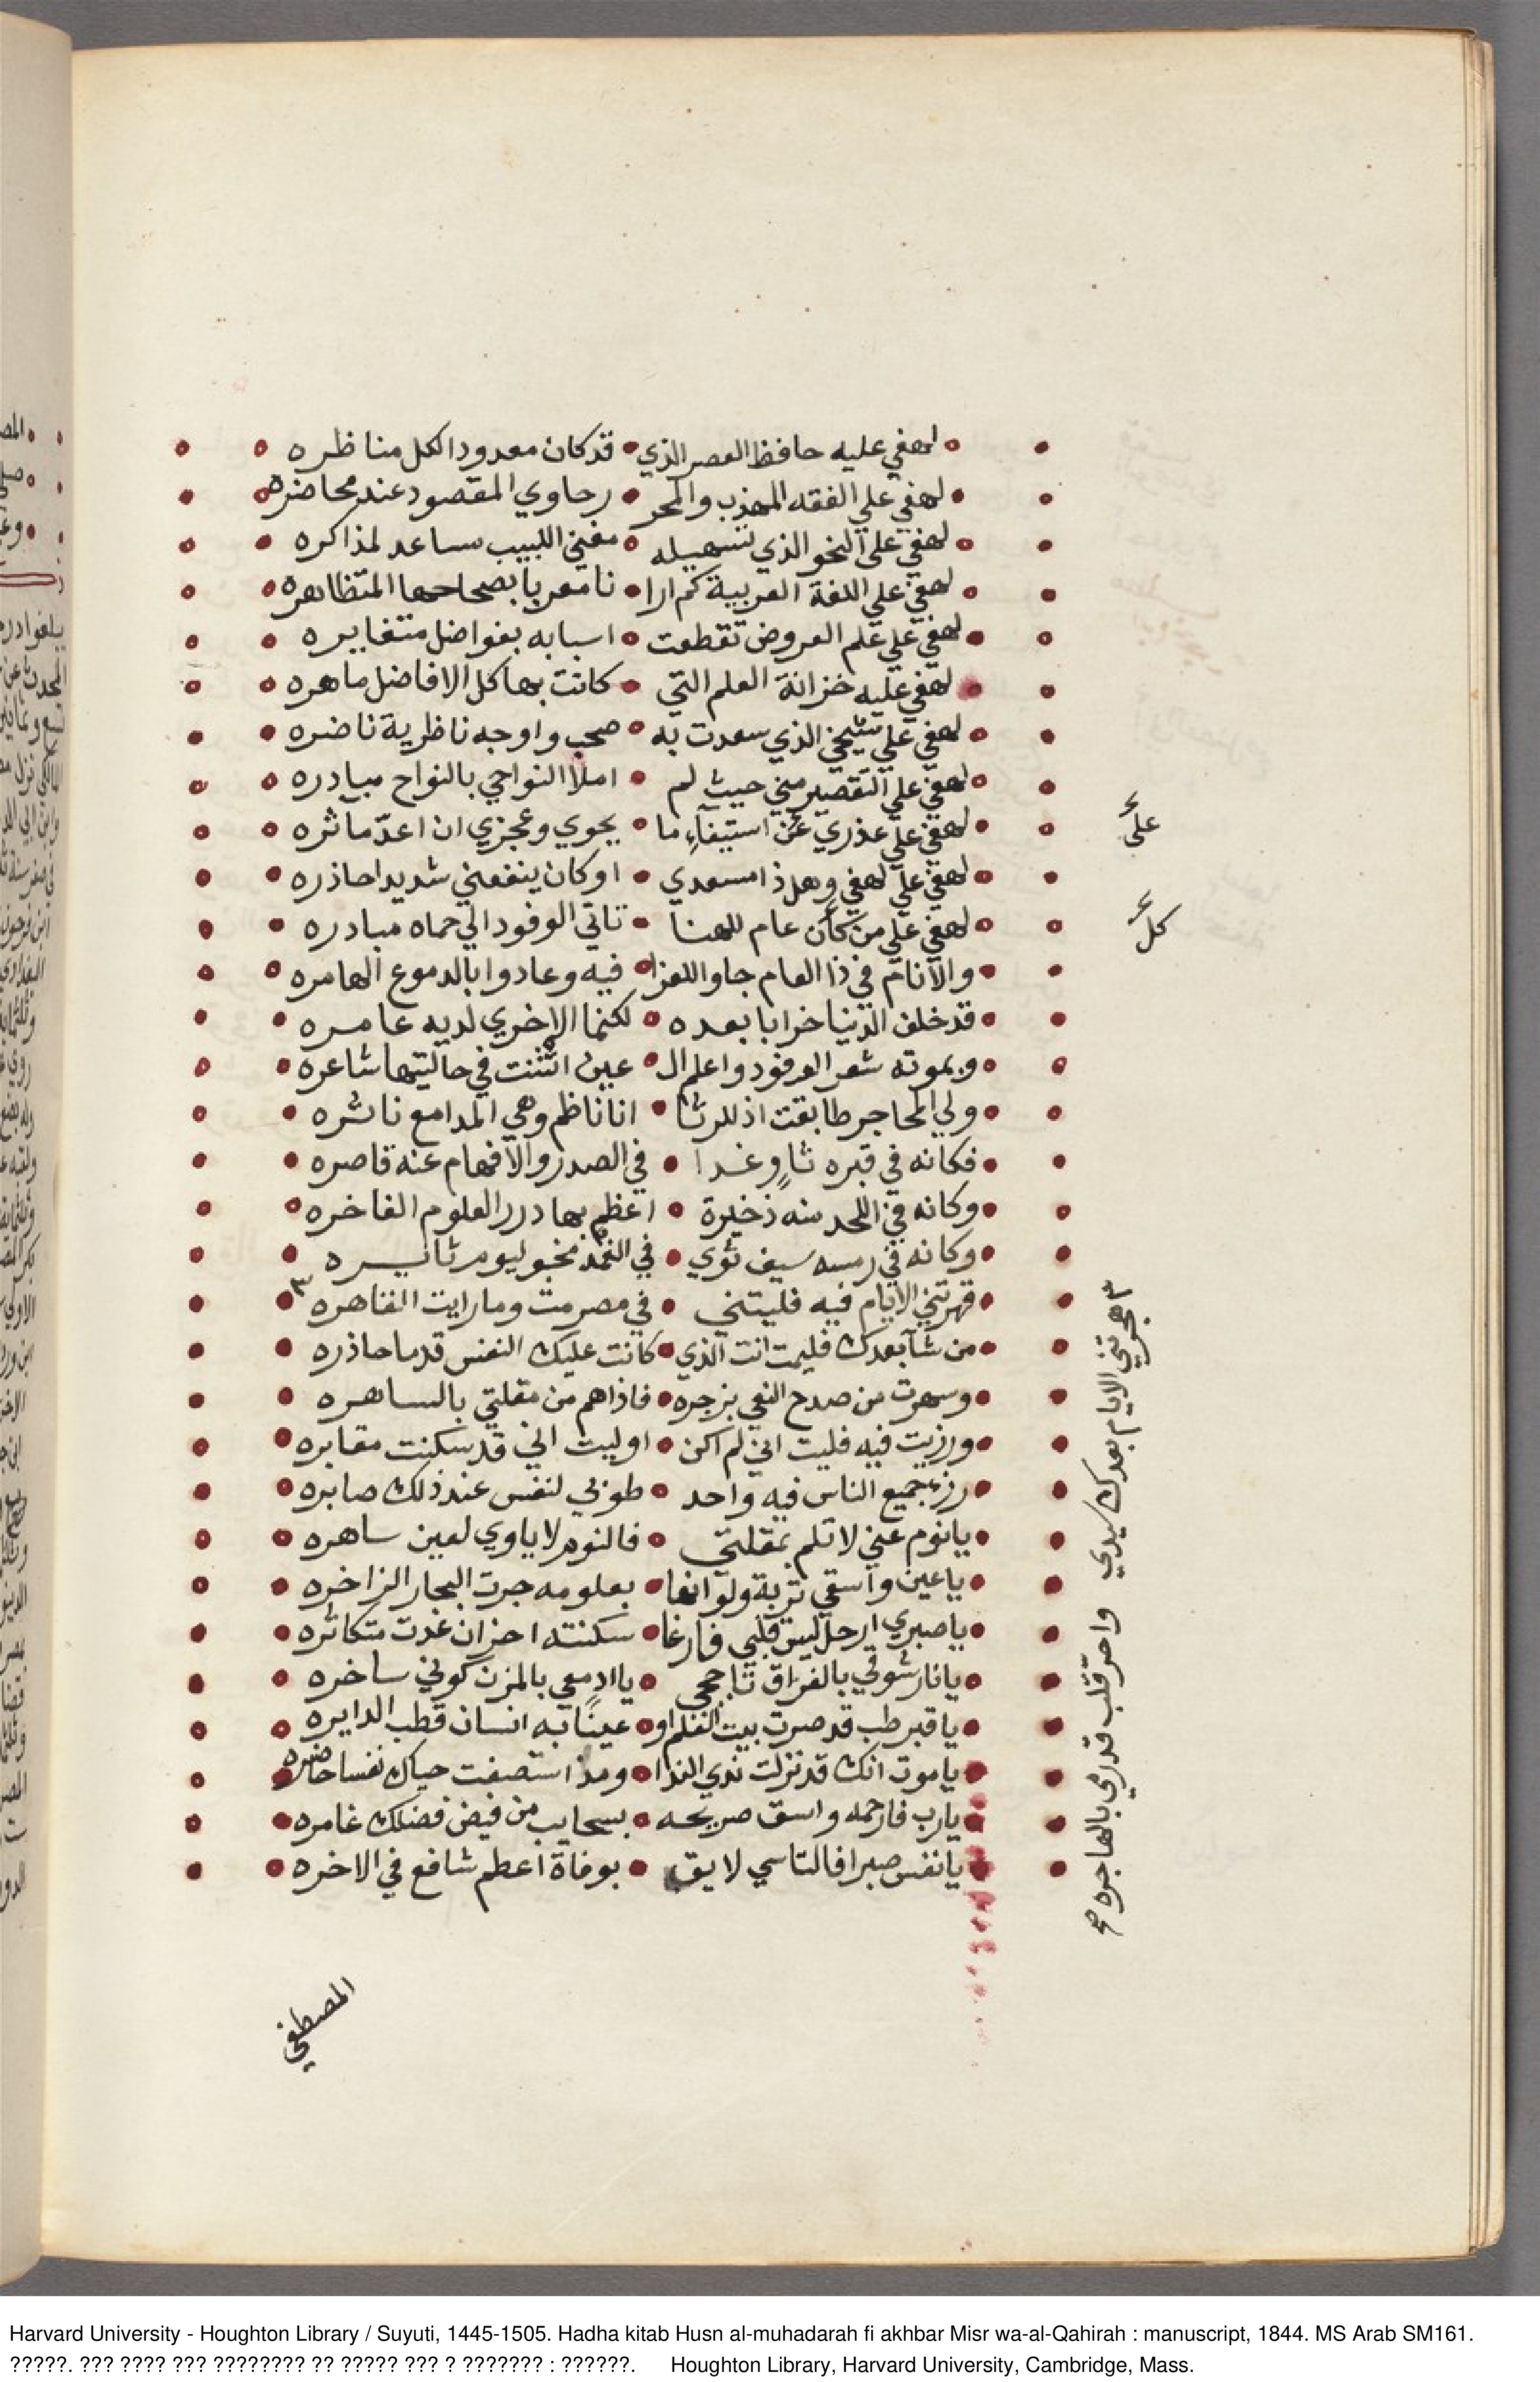 لهفي عليه حافظ العصر الذي • قد كان معدودا لكل مناظره
لهفي علي الفقه المهذب والمحر • رحاوي المقصود عند محاضره
لهفي علي النحو الذي تسهيله • مغني اللبيب مساعد لمذاكره
لهفي علي اللغة العربية كم ارا • نا معربا بصحاحها المتظاهره
لهفي علي علم العروض تقطعت • اسبابه بفواضل متغايره
لهفي عليه خزانة العلم التي • كانت بها كل الافاضل ماهره
لهفي علي شيخي الذي سعدت به • صحب واوجه ناظرية ناضره
لهفي علي التقصير مني حيث لم • املا النواحي بالنواح مبادره
لهفي علي عذري عن استيفاء ما • يحوي وعجزي ان اعد ماثره
لهفي علي لهفي وهل ذا مسعدي • او كان ينفعني شديد احاذره
لهفي علي من كان عام للهنا • تاتي الوفود الي حماه مبادره
والآنام في ذا العام جاوا للعزا • فيه وعادوا بالدموع الهامره
قد خلف الدنيا خرابا بعده • لكنما الاخري لديه عامره
وبموته شعر الفرقود واعلم ال • عين انثنت في حالتيها شاعره
ولي المحاجر طابقت اذ للرثا • انا ناظم وهي المدامع ناثره
فكانه في قبره ثاٍو غدا • في الصدر والآفهام عنه قاصره
وكانه في اللحد منه ذخيرة • اعظم بها درر العلوم الفاخره
وكانه في رمسه سيف ثوي • في الغمد مخبو ليوم ثايره
قهرتني الايام فيه فليتني • في مصر مت وما رايت القاهره ٣
من شا بعدك فليمت انت الذي • كانت عليك النفس قدما حاذره
وسهرت من صدح النعي بزجره • فاذا هم من مقلتي بالساهره
ورزيت فيه فليت اني لم اكن • او ليت اني قد سكنت مقابره
رزء جميع الناس فيه واحد • طوبي لنفس عند ذلك صابره
يا نوم عيني لا تلم بمقلتي • فالنوم لا ياوي لعين ساهره
يا عين واسقي تربة ولو انها • بعلومه جرت البحار الزاخره
يا صبري ارحل ليس قلبي فارغا • سكنته احزان غدت متكاثره
يا نار شوقي بالفراق تاججي • يا ادمعي بالمزن كوني ساخره
يا قبر طب قد صرت بيت العلم او • عيناً به انسان قطب الدايره
يا موت انك قد نزلت بذي الندا • ومذ استضفت حباك نفسا حاضره
يا رب فارحمه واسق صريحه • بسحايب من فيض فضلك غامره
يا نفس صبرا فالتاسي لايق • بوفاة اعظم شافع في الاخره
المصطفي
علي
كل
٣ هجرتني الايام بعدك سيدي واحر قلب قد رمي بالهاجره صح
Harvard University - Houghton Library / Suyuti, 1445-1505. Hadha kitab Husn al-muhadarah fi akhbar Misr wa-al-Qahirah : manuscript, 1844. MS Arab SM161.
?????. ??? ???? ??? ???????? ?? ????? ??? ? ??????? : ??????. Houghton Library, Harvard University, Cambridge, Mass.